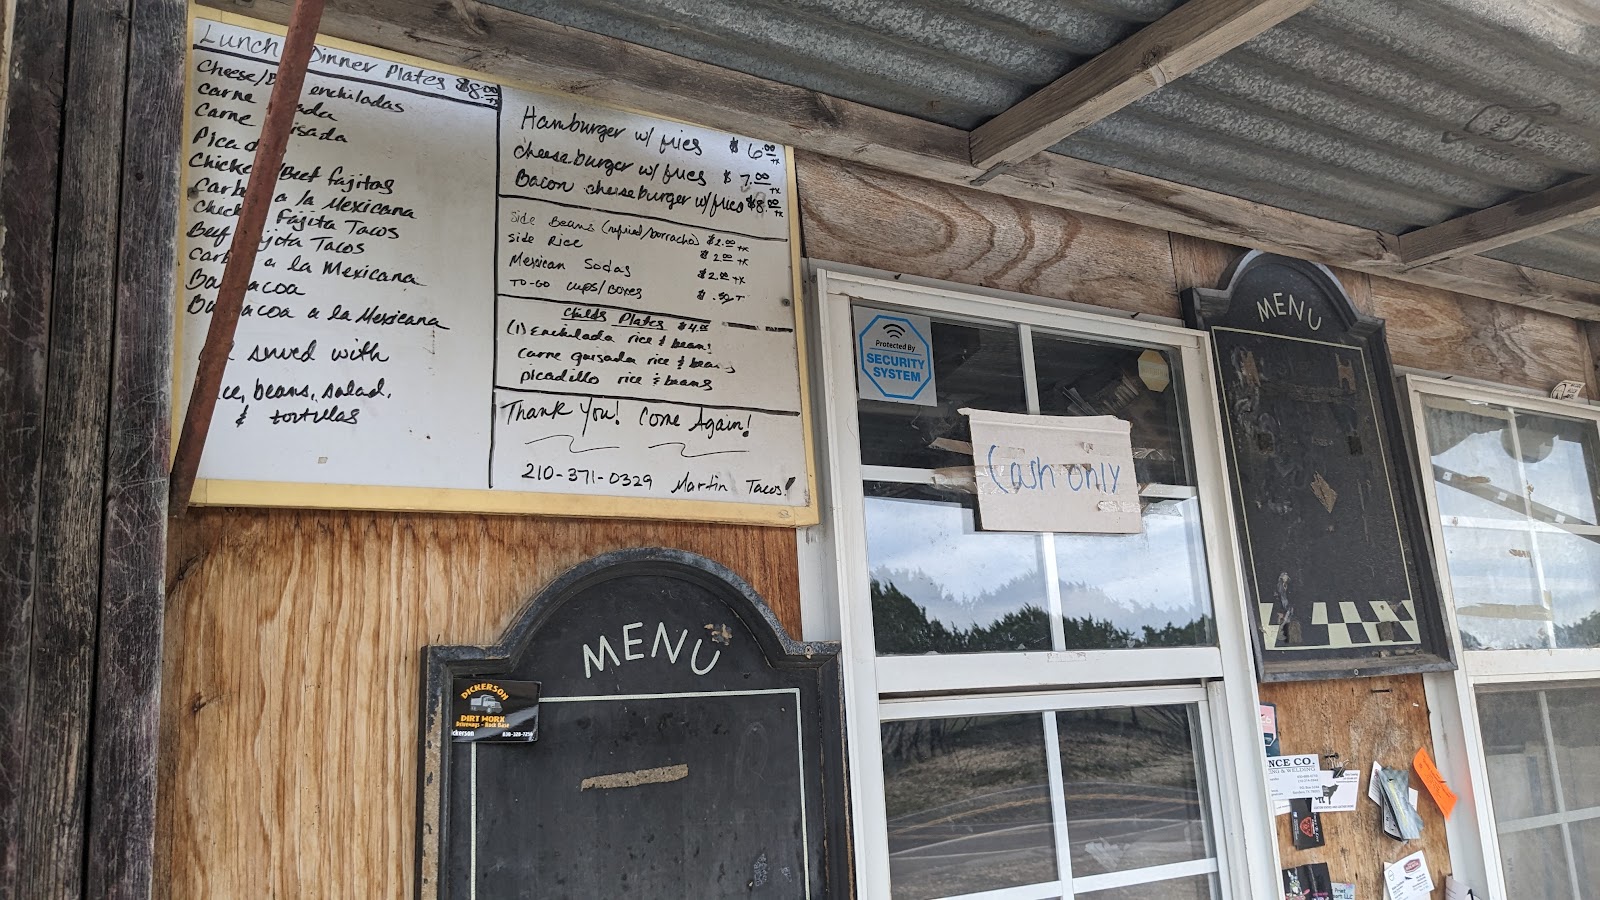 Lunch Dinner Plates $8.00 +x
Cheese/B enchiladas
Carne ada
Carne isada
Picad
Chicke /Beef fajitas
Carb a la Mexicana
Chick fajita Tacos
Beef jita Tacos
Carb a la Mexicana
Ba acoa
Ba acoa a la Mexicana
served with
ce, beans, salad,
& tortillas
Hamburger w/ fries $6.00 +x
cheeseburger w/fries $7.00 +x
Bacon cheeseburger w/fries $8.00 +x
Side Beans (refried/borracho) $2.00 +x
Side Rice $2.00 +x
Mexican Sodas $2.00 +x
TO-GO cups/boxes $.50 T
Childs Plates $4.00
(1) Enchilada rice & beans
carne guisada rice & beans
picadillo rice & beans
Thank You! Come Again!
210-371-0329 Martin Tacos!
MENU
DICKERSON
DIRT WORX
Driveways - Rock Base
ickerson 830-328-7250
Protected By
SECURITY
SYSTEM
Cash only
MENU
NCE CO.
NG & WELDING